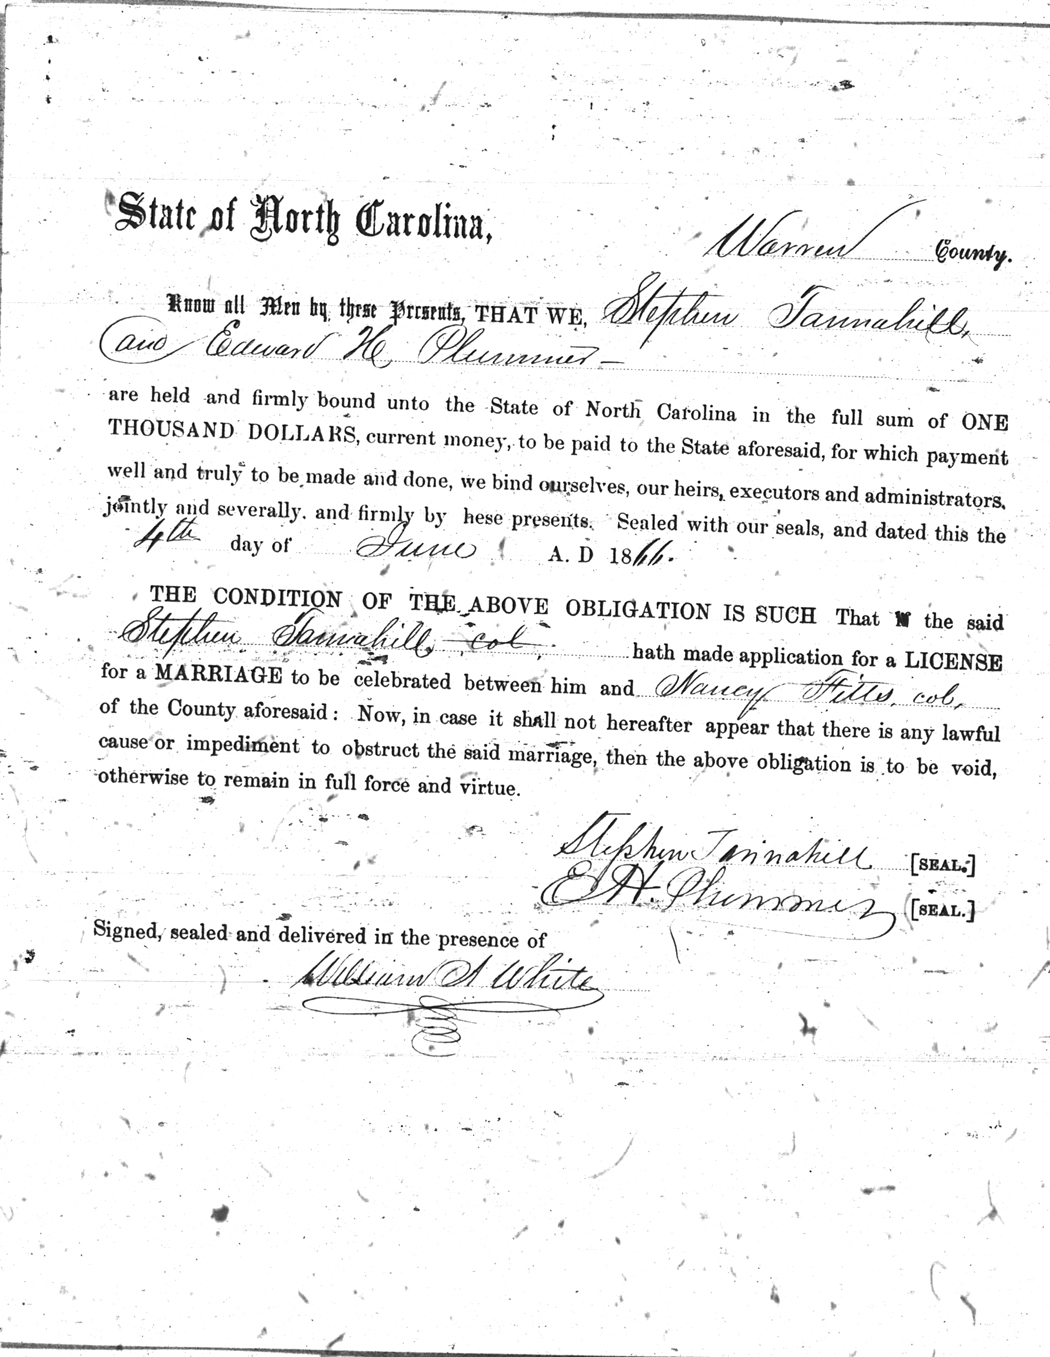 State of North Carolina,
Warren County.
Know all Men by these Presents, THAT WE, Stephen Tannahill,
and Edward H. Plummer
are held and firmly bound unto the State of North Carolina in the full sum of ONE
THOUSAND DOLLARS, current money, to be paid to the State aforesaid, for which payment
well and truly to be made and done, we bind ourselves, our heirs, executors and administrators,
jointly and severally, and firmly by hese presents. Sealed with our seals, and dated this the
4th day of June A. D 1866.
THE CONDITION OF THE ABOVE OBLIGATION IS SUCH That if the said
Stephen Tannahill, col, hath made application for a LICENSE
for a MARRIAGE to be celebrated between him and Nancy Fitts, col,
of the County aforesaid: Now, in case it shall not hereafter appear that there is any lawful
cause or impediment to obstruct the said marriage, then the above obligation is to be void,
otherwise to remain in full force and virtue.
Stephen Tannahill [SEAL.]
E H. Plummer [SEAL.]
Signed, sealed and delivered in the presence of
William A White